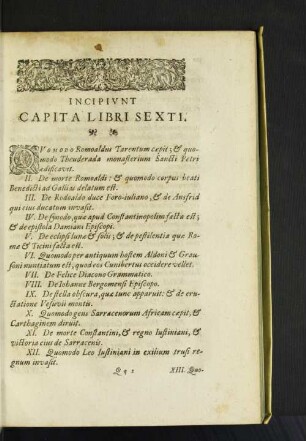 INCIPIVNT
CAPITA LIBRI SEXTI.
QVOMODO Romoaldus Tarentum cepit; & quo-
modo Theuderada monasterium Sancti Petri
ædificavit.
II. De morte Romoaldi: & quomodo corpus beati
Benedicti ad Gallias delatum est.
III. De Rodoaldo duce Foro-iuliano, & de Ansfrid
qui eius ducatum invasit.
IV. De synodo, quæ apud Constantinopolim facta est;
& de epistola Damiani Episcopi.
V. De eclypsi lunæ & solis; & de pestilentia quæ Ro-
mæ & Ticini facta est.
VI. Quomodo per antiquum hostem Aldoni & Grau-
soni nuntiatum est, quod eos Cunibertus occidere vellet.
VII. De Felice Diacono Grammatico.
VIII. De Iohanne Bergomensi Episcopo.
IX. De stella obscura, quæ tunc apparuit: & de eru-
ctatione Vesuvii montis.
X. Quomodo gens Sarracenorum Africam cepit, &
Carthaginem diruit.
XI. De morte Constantini, & regno Iustiniani, &
victoria eius de Sarracenis.
XII. Quomodo Leo Iustiniani in exilium trusi re-
gnum invasit.
Qq 2 XIII. Quo-